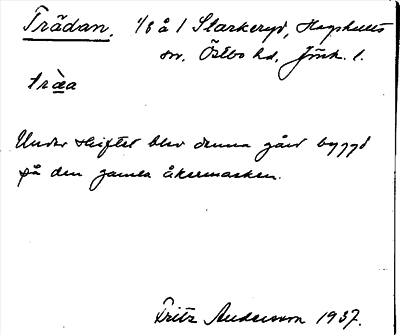 Trädan. 1/8 å 1 Starkeryd, Hagshults
sn. Östbo hd. Jönk. l.
træ̀a
Under skiftet blev denna gård byggd
på den gamla åkermarken.
Fritz Andersson 1937.